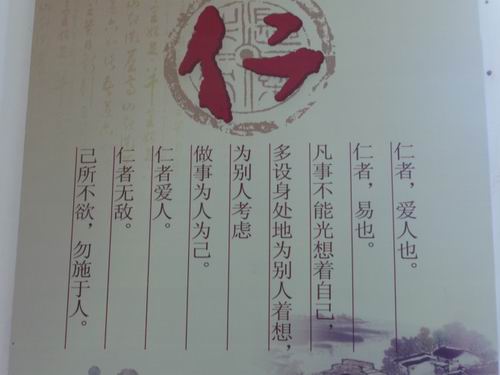 仁
仁者，爱人也。
仁者，易也。
凡事不能光想着自己，
多设身处地为别人着想，
为别人考虑
做事为人为己。
仁者爱人。
仁者无敌。
己所不欲，勿施于人。